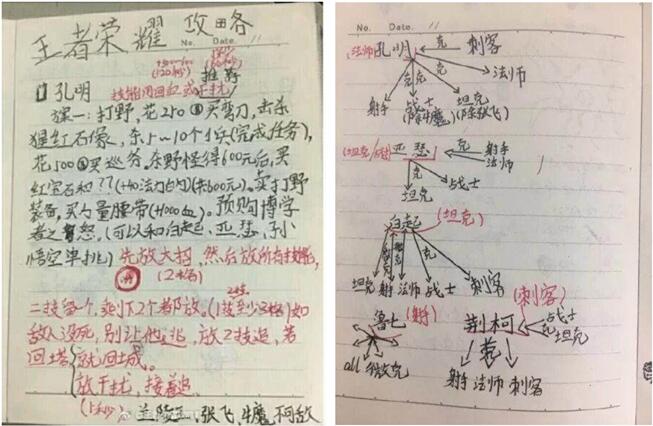 王者荣耀 攻略
No. Date.
(120秒)
(60秒)
推荐
孔明
技能间回血或干扰
课一:打野,花250买弯刀,击杀
猩红石像,杀5~10个小兵(完成任务),
花500买巡守。杀野怪得600元后,买
红宝石和??(+40法力凸)(共600元)。卖打野
装备,买力量腰带(+1000血)。预购博学
者之怒。(可以和白起、亚瑟、孙
悟空单挑)先放大招,然后放所有技能,
(2格)
二技留一个,剩下2个都放。(1技至少3格)如
敌人没死,别让他逃,放2技追,若
回塔
就回城。
放干扰,接着追
兰陵王、张飞、牛魔、不敌
No. Date.
法师 孔明 克 刺客
克 克 克
法师
射手 战士 坦克
(除牛魔) (除张飞)
坦克/战士 亚瑟 克 射手
法师
坦克 战士
白起 (坦克)
克
坦克 射手 法师 战士 刺客
鲁七 (射)
all 微克
荆柯 (刺客)
克 战士
坦克
克
射手 法师 刺客